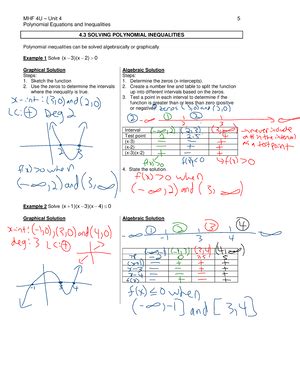 MHF 4U – Unit 4
5
Polynomial Equations and Inequalities
4.3 SOLVING POLYNOMIAL INEQUALITIES
Polynomial inequalities can be solved algebraically or graphically
Example 1 Solve (x – 3)(x – 2) > 0
Graphical Solution
Steps:
1. Sketch the function
2. Use the zeros to determine the intervals
where the inequality is true.
x-int: (3,0) and (2,0)
LC: + Deg 2
2 3
f(x) > 0 when
(-∞, 2) and (3, ∞)
Algebraic Solution
Steps:
1. Determine the zeros (x-intercepts).
2. Create a number line and table to split the function
up into different intervals based on the zeros.
3. Test a point in each interval to determine if the
function is greater than or less than zero (positive
or negative)
Interval (-∞, 2) (2, 3) (3, ∞)
Test point
(x-3) - - +
(x-2) - + +
f(x)>0 f(x)<0 f(x)>0
4. State the solution.
f(x) > 0 when
(-∞, 2) and (3, ∞)
Example 2 Solve (x + 1)(x – 3)(x – 4) ≤ 0
Graphical Solution
x-int: (-1,0), (3,0) and (4,0)
deg: 3 LC: +
-1 3 4
Algebraic Solution
-∞ ① ② ③ ④ ∞
-1 3 4
f(x) ≤ 0 when
(-∞, -1] and [3, 4]